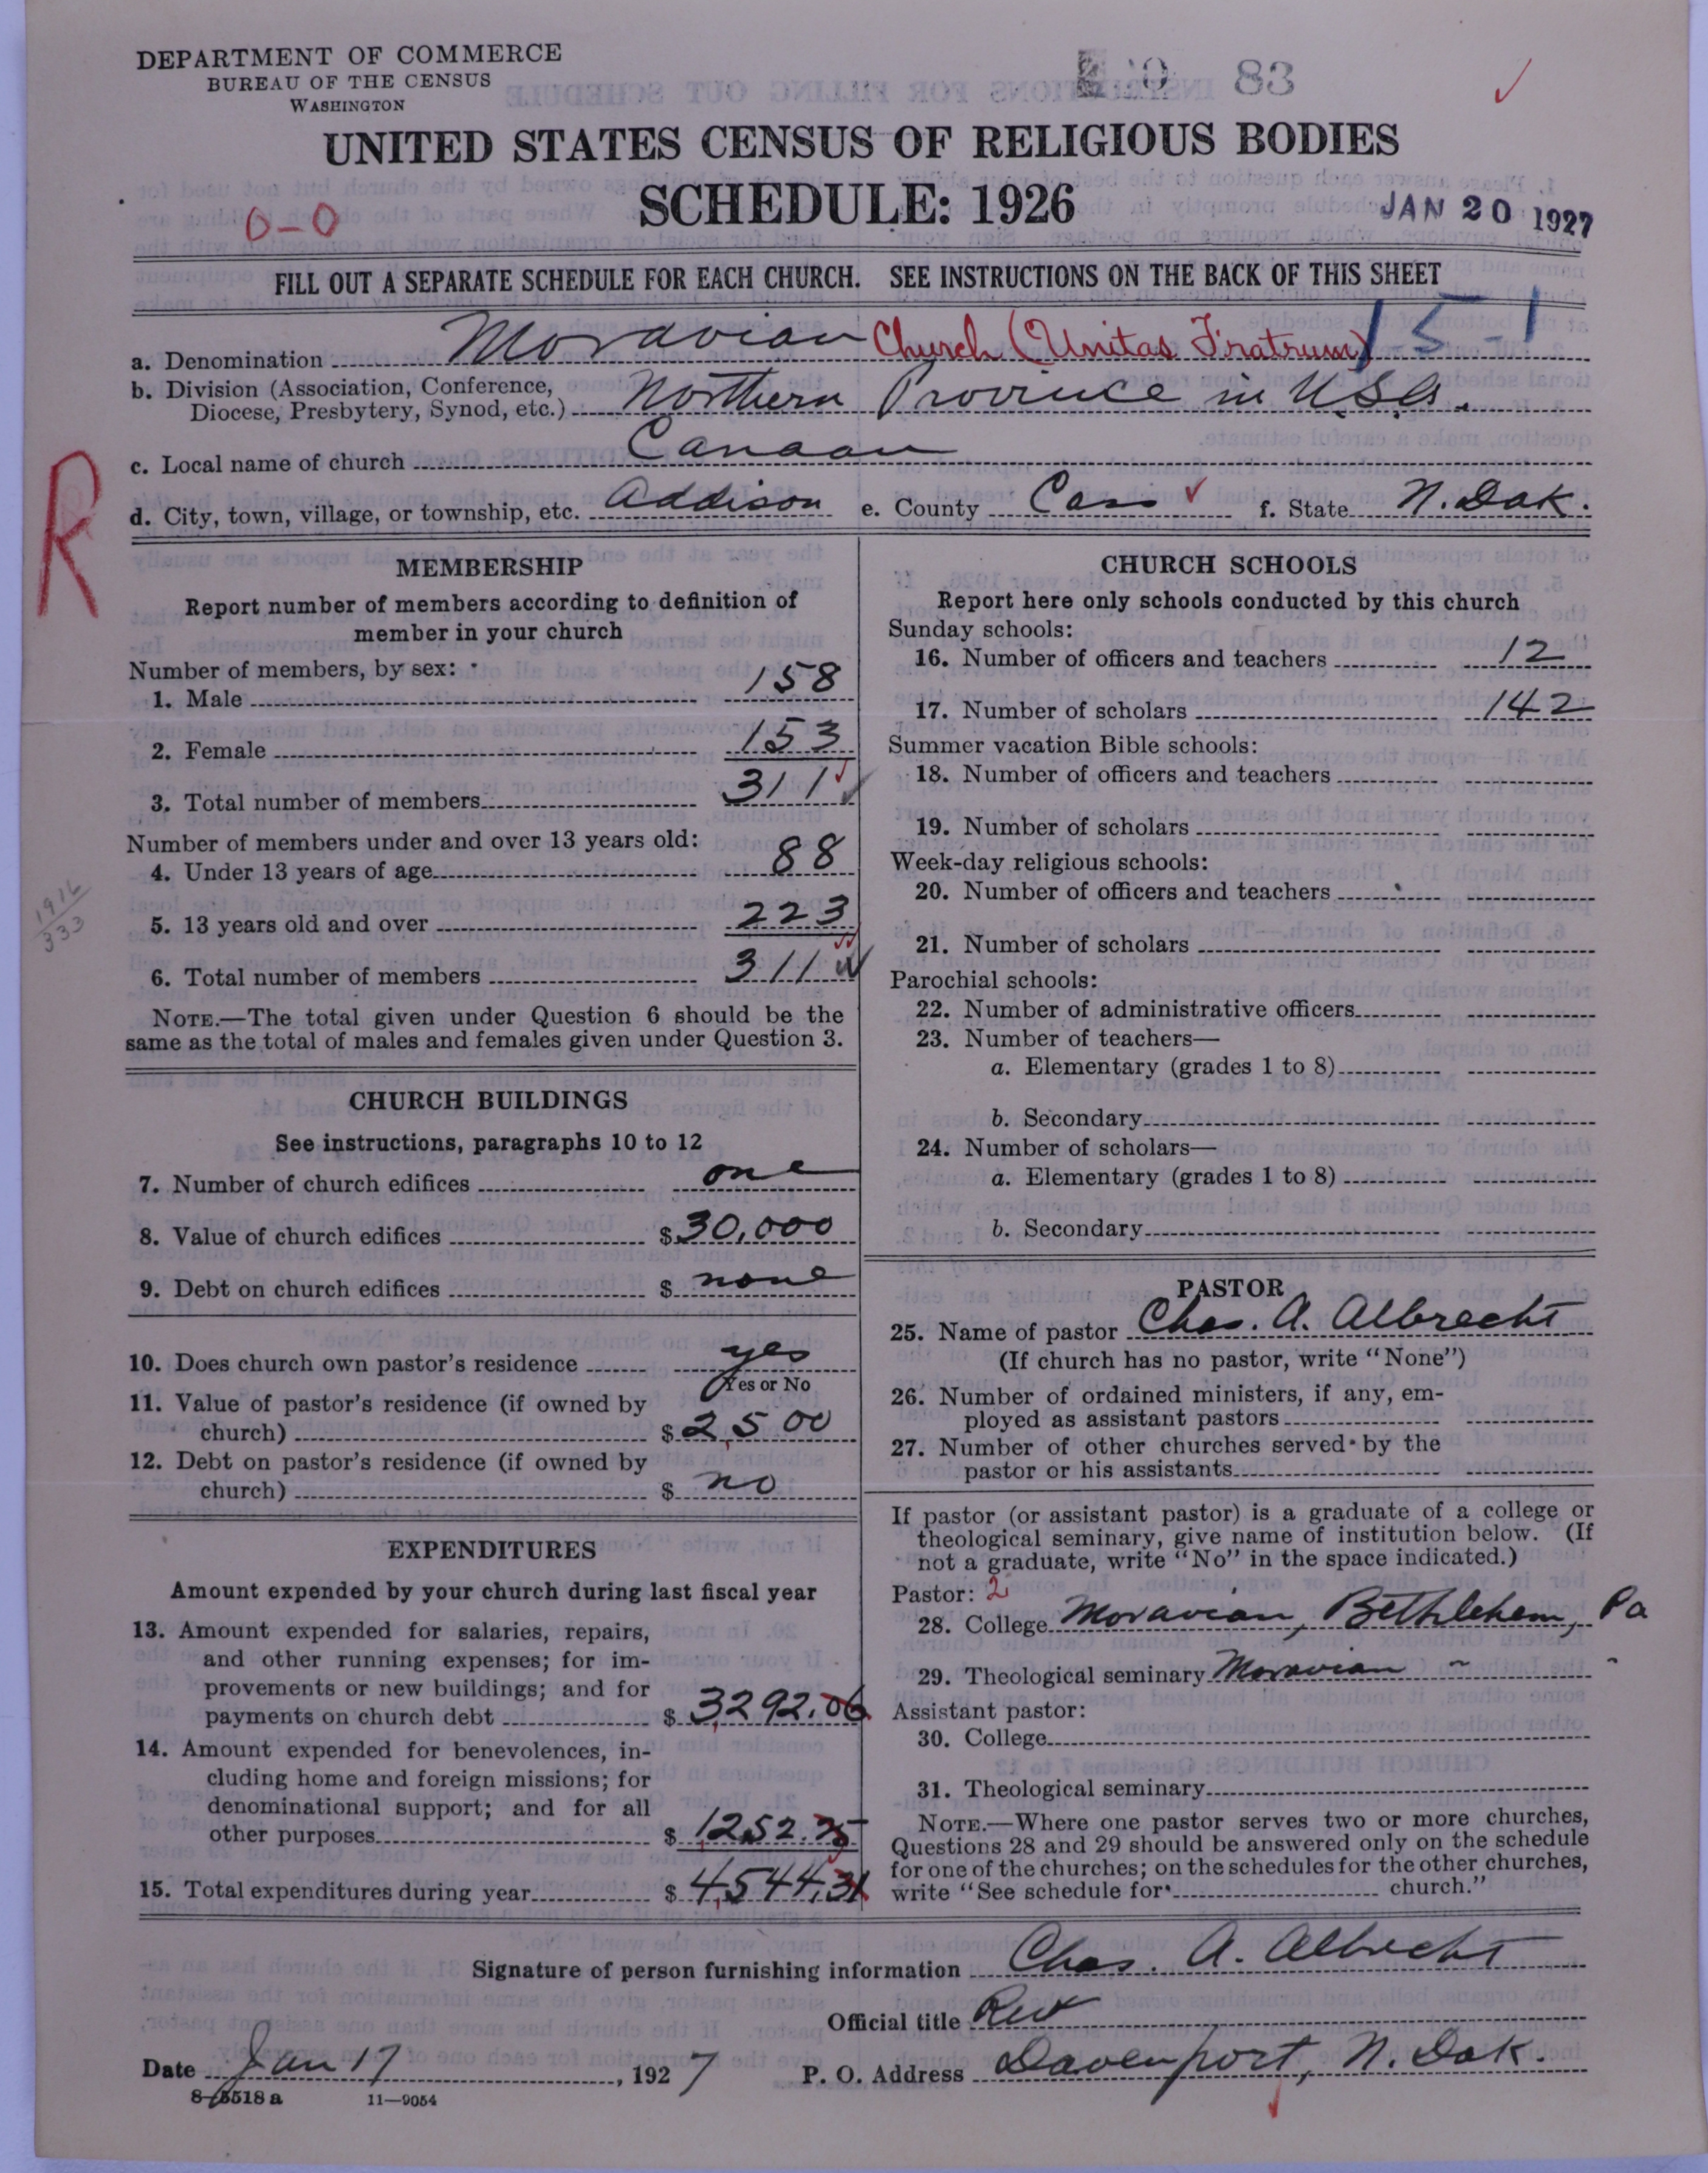 DEPARTMENT OF COMMERCE
BUREAU OF THE CENSUS
WASHINGTON
83
UNITED STATES CENSUS OF RELIGIOUS BODIES
SCHEDULE: 1926
0-0
JAN 20 1927
FILL OUT A SEPARATE SCHEDULE FOR EACH CHURCH. SEE INSTRUCTIONS ON THE BACK OF THIS SHEET
15-1
a. Denomination Moravian Church (Unitas Fratrum)
b. Division (Association, Conference,
Diocese, Presbytery, Synod, etc.) Northern Province in U.S.A.
c. Local name of church Canaan
d. City, town, village, or township, etc. Addison e. County Cass f. State N. Dak.
R
MEMBERSHIP
Report number of members according to definition of
member in your church
Number of members, by sex:
1. Male 158
2. Female 153
3. Total number of members 311
Number of members under and over 13 years old:
4. Under 13 years of age 88
5. 13 years old and over 223
1916
333
6. Total number of members 311
NOTE.—The total given under Question 6 should be the
same as the total of males and females given under Question 3.
CHURCH BUILDINGS
See instructions, paragraphs 10 to 12
7. Number of church edifices one
8. Value of church edifices $ 30,000
9. Debt on church edifices $ none
10. Does church own pastor's residence yes
Yes or No
11. Value of pastor's residence (if owned by
church) $ 2,500
12. Debt on pastor's residence (if owned by
church) $ no
EXPENDITURES
Amount expended by your church during last fiscal year
13. Amount expended for salaries, repairs,
and other running expenses; for im-
provements or new buildings; and for
payments on church debt $ 3,292.06
14. Amount expended for benevolences, in-
cluding home and foreign missions; for
denominational support; and for all
other purposes $ 1,252.25
15. Total expenditures during year $ 4,544.31
CHURCH SCHOOLS
Report here only schools conducted by this church
Sunday schools:
16. Number of officers and teachers 12
17. Number of scholars 142
Summer vacation Bible schools:
18. Number of officers and teachers
19. Number of scholars
Week-day religious schools:
20. Number of officers and teachers
21. Number of scholars
Parochial schools:
22. Number of administrative officers
23. Number of teachers—
a. Elementary (grades 1 to 8)
b. Secondary
24. Number of scholars—
a. Elementary (grades 1 to 8)
b. Secondary
PASTOR
25. Name of pastor Chas. A. Albrecht
(If church has no pastor, write "None")
26. Number of ordained ministers, if any, em-
ployed as assistant pastors
27. Number of other churches served by the
pastor or his assistants
If pastor (or assistant pastor) is a graduate of a college or
theological seminary, give name of institution below. (If
not a graduate, write "No" in the space indicated.)
Pastor: 2
28. College Moravian, Bethlehem, Pa
29. Theological seminary Moravian " "
Assistant pastor:
30. College
31. Theological seminary
NOTE.—Where one pastor serves two or more churches,
Questions 28 and 29 should be answered only on the schedule
for one of the churches; on the schedules for the other churches,
write "See schedule for church."
Signature of person furnishing information Chas. A. Albrecht
Official title Rev
Date Jan 17, 1927 P. O. Address Davenport, N. Dak.
8-5518 a 11-9054